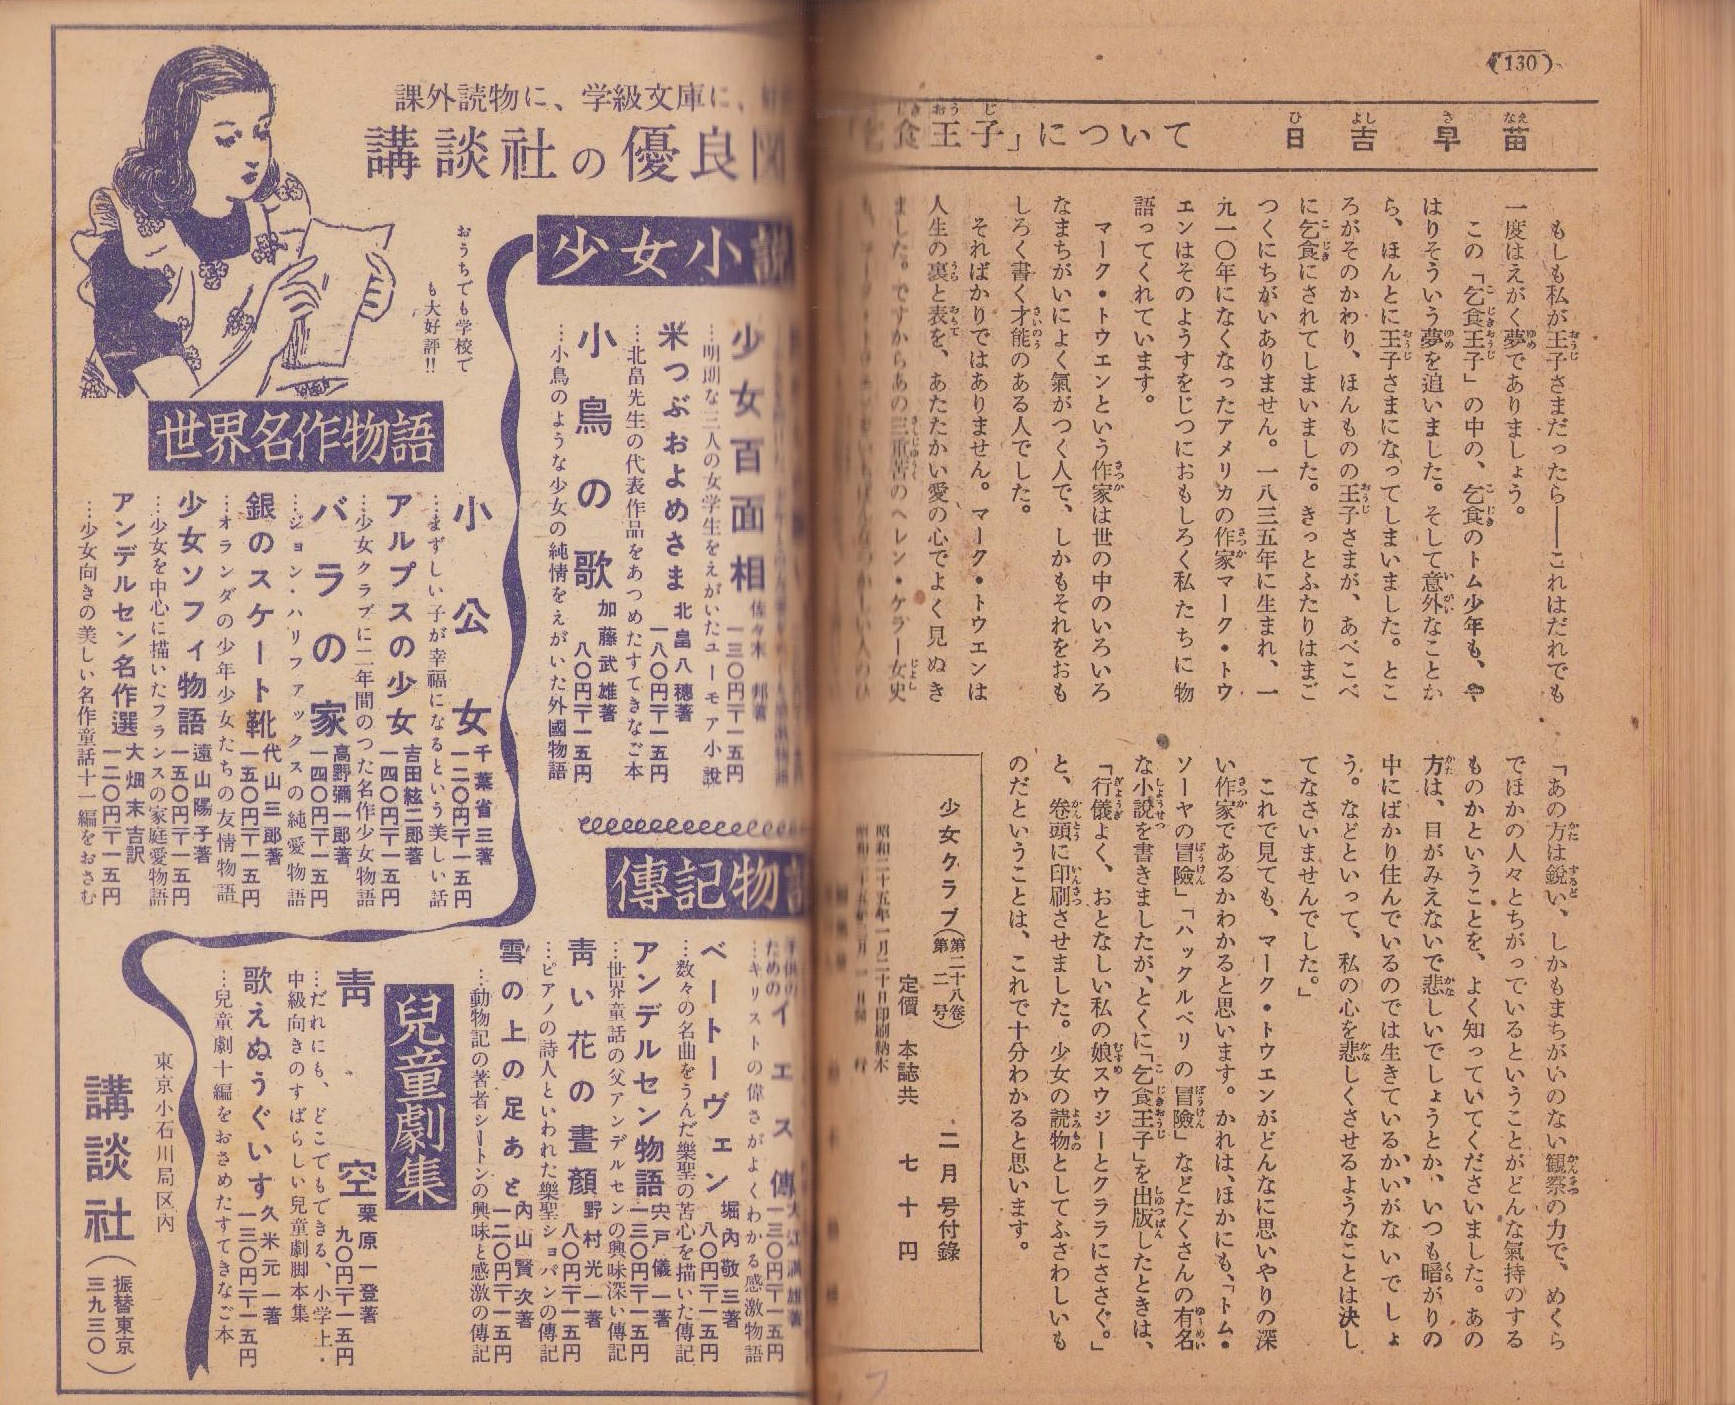 (130)
食王子」について　　日吉早苗
もしも私が王子さまだったら――これはだれでも
一度はえがく夢でありましょう。
この「乞食王子」の中の、乞食のトム少年も、や
はりそういう夢を追いました。そして意外なことか
ら、ほんとに王子さまになってしまいました。とこ
ろがそのかわり、ほんものの王子さまが、あべこべ
に乞食にされてしまいました。きっとふたりはまご
つくにちがいありません。一八三五年に生まれ、一
九一〇年になくなったアメリカの作家マーク・トウ
エンはそのようすをじつにおもしろく私たちに物
語ってくれています。
マーク・トウエンという作家は世の中のいろいろ
なまちがいによく氣がつく人で、しかもそれをおも
しろく書く才能のある人でした。
そればかりではありません。マーク・トウエンは
人生の裏と表を、あたたかい愛の心でよく見ぬき
ました。ですからあの三重苦のヘレン・ケラー女史
「あの方は鋭い、しかもまちがいのない観察の力で、めくら
でほかの人々とちがっているということがどんな氣持のする
ものかということを、よく知っていてくださいました。あの
方は、目がみえないで悲しいでしょうとか、いつも暗がりの
中にばかり住んでいるのでは生きているかいがないでしょ
う。などといって、私の心を悲しくさせるようなことは決し
てなさいませんでした。」
これで見ても、マーク・トウエンがどんなに思いやりの深
い作家であるかわかると思います。かれは、ほかにも、「トム・
ソーヤの冒險」「ハックルベリの冒險」などたくさんの有名
な小説を書きましたが、とくに「乞食王子」を出版したときは、
「行儀よく、おとなしい私の娘スウジーとクララにささぐ。」
と、卷頭に印刷させました。少女の読物としてふさわしいも
のだということは、これで十分わかると思います。
少女クラブ（第二十八卷 第二号）　二月号付録
定價　本誌共　七十円
昭和二十五年一月二十日印刷納本
課外読物に、学級文庫に、
講談社の優良図
おうちでも学校で
も大好評!!
少女小説
少女百面相　佐々木邦著　一三〇円〒一五円
…明朗な三人の女学生をえがいたユーモア小説
米つぶおよめさま　北畠八穂著　一八〇円〒一五円
…北畠先生の代表作品をあつめたすてきなご本
小鳥の歌　加藤武雄著　八〇円〒一五円
…小鳥のような少女の純情をえがいた外國物語
世界名作物語
小公女　千葉省三著　一二〇円〒一五円
…まずしい子が幸福になるという美しい話
アルプスの少女　吉田絃二郎著　一四〇円〒一五円
…少女クラブに二年間のった名作少女物語
バラの家　高野彌一郎著　一四〇円〒一五円
…ジョン・ハリファックスの純愛物語
銀のスケート靴　代山三郎著　一五〇円〒一五円
…オランダの少年少女たちの友情物語
少女ソフィ物語　遠山陽子著　一五〇円〒一五円
…少女を中心に描いたフランスの家庭愛物語
アンデルセン名作選　大畑末吉訳　一二〇円〒一五円
…少女向きの美しい名作童話十一編をおさむ
傳記物語
子供のための イエス傳　一三〇円〒一五円
…キリストの偉さがよくわかる感激物語
ベートーヴェン　堀內敬三著　八〇円〒一五円
…数々の名曲をうんだ樂聖の苦心を描いた傳記
アンデルセン物語　宍戸儀一著　一三〇円〒一五円
…世界童話の父アンデルセンの興味深い傳記
靑い花の晝顔　野村光一著　八〇円〒一五円
…ピアノの詩人といわれた樂聖ショパンの傳記
雪の上の足あと　內山賢次著　一二〇円〒一五円
…動物記の著者シートンの興味と感激の傳記
兒童劇集
靑空　栗原一登著　九〇円〒一五円
…だれにも、どこでもできる、小学上・
中級向きのすばらしい兒童劇脚本集
歌えぬうぐいす　久米元一著　一三〇円〒一五円
…兒童劇十編をおさめたすてきなご本
東京小石川局区內
講談社（振替東京三九三〇）